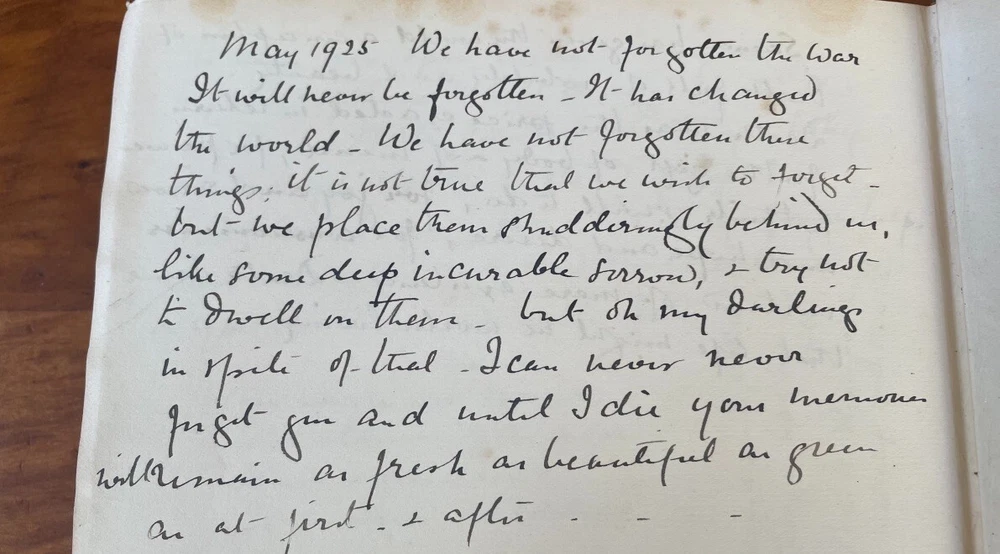 May 1925 We have not forgotten the war
It will never be forgotten - It has changed
the world - We have not forgotten these
things; it is not true that we wish to forget -
but we place them shudderingly behind us,
like some deep incurable sorrow, & try not
to dwell on them - but oh my darlings
in spite of that - I can never never
forget you and until I die your memories
will remain as fresh as beautiful as green
as at first - & after - - -